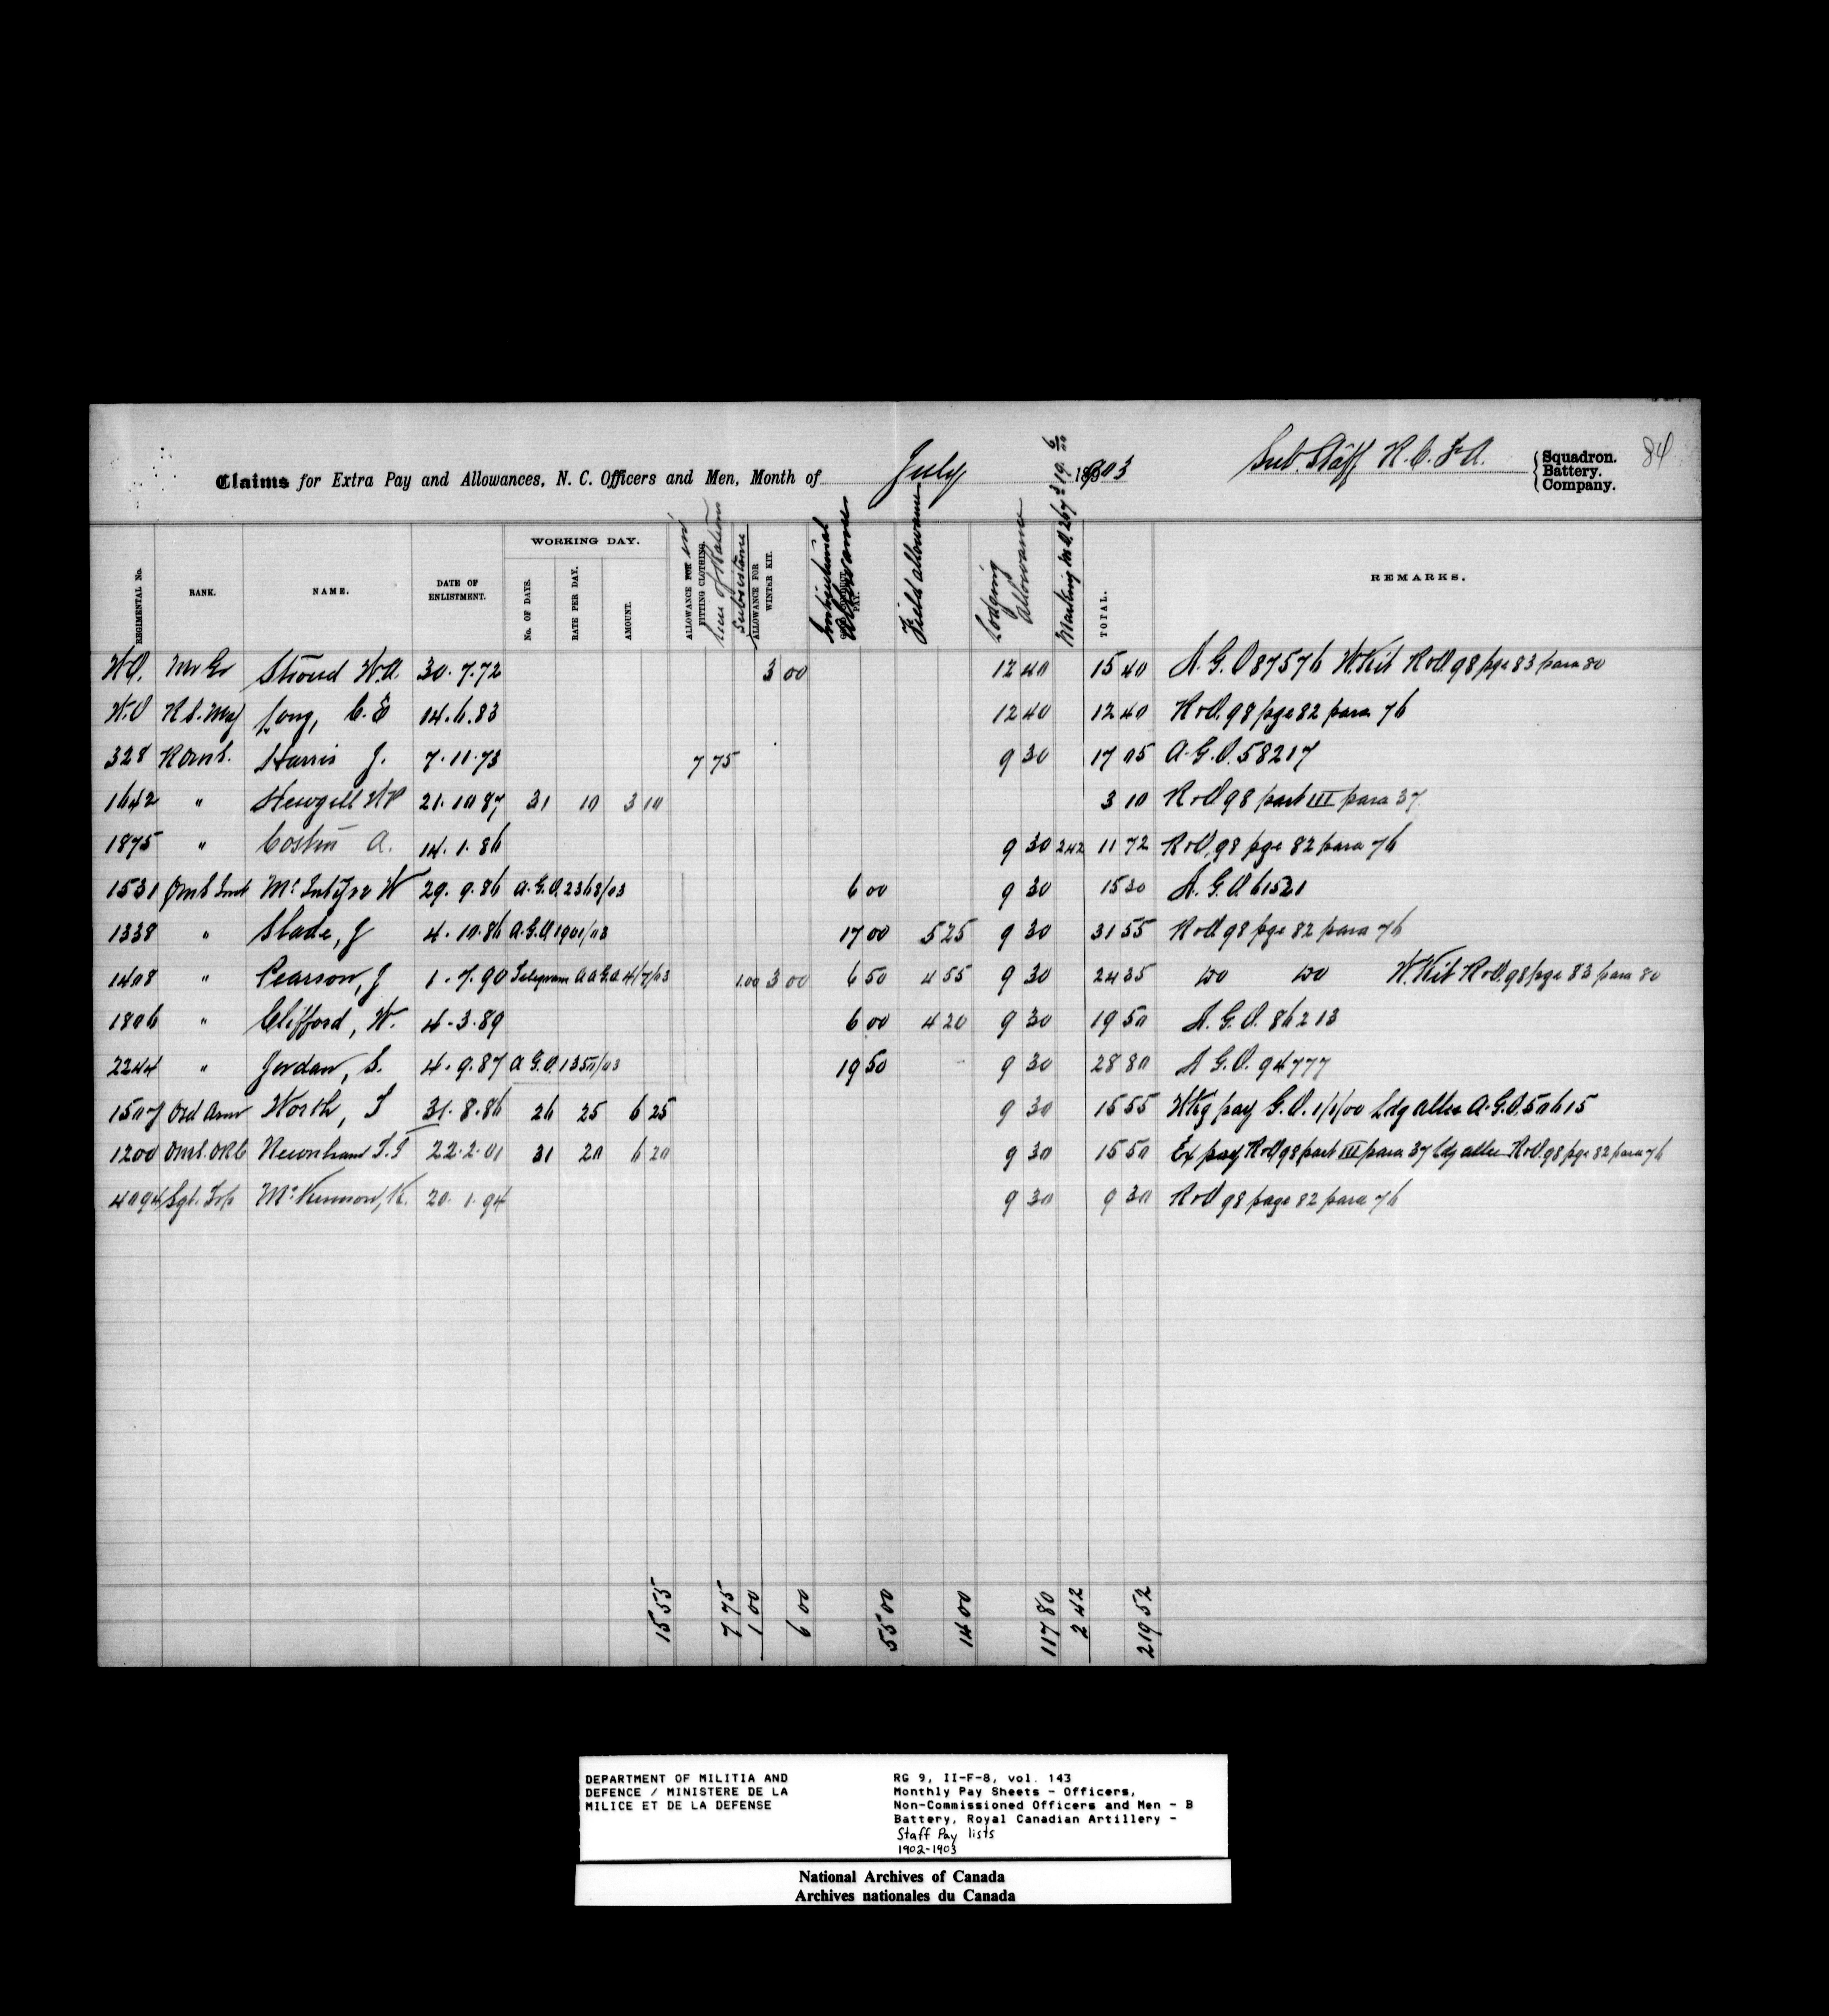 84
Claims for Extra Pay and Allowances, N. C. Officers and Men, Month of July 1903 Sub. Staff R.C.F.A. Squadron. Battery. Company.
REGIMENTAL No. RANK. NAME. DATE OF ENLISTMENT. WORKING DAY. No. OF DAYS. RATE PER DAY. AMOUNT. ALLOWANCE FOR FITTING CLOTHING. in lieu of Rations Subsistence ALLOWANCE FOR WINTER KIT. Instructional Allowance PAY. Field allowance Lodging Allowance TOTAL. REMARKS.
W.O. Mr Gr Stroud W.A. 30. 7.72 3 00 12 40 15 40 A.G.O 87576 W.Kit R&O. 98 pge 83 para 80
W.O R.S.Maj Long, C.E 14.6.83 12 40 12 40 R&O. 98 pge 82 para 76
328 Harris J. 7.11.73 7 75 9 30 17 05 A.G.O. 58217
1642 " 21.10 87 31 10 3 10 3 10 R&O 98 part III para 37
1875 " Costin A. 14.1.86 9 30 2 42 11 72 R&O. 98 pge 82 para 76
1531 Qms Inst McIntyre W 29. 9.86 A.G.O. 2368/03 6 00 9 30 15 30 A.G.O 61521
1338 " Slade, J 4.10.86 A.G.O 1901/03 17 00 5 25 9 30 31 55 R&O 98 pge 82 para 76
1408 " Pearson, J 1.7.90 Telegram A.A.G.A 4/7/03 1.00 3 00 6 50 4 55 9 30 24 35 do do W.Kit R&O. 98 pge 83 para 80
1806 " Clifford, W. 4.3.89 6 00 4 20 9 30 19 50 A.G.O. 86213
2244 " Jordan, S. 4.9.87 A G.O. 1350/03 19 50 9 30 28 80 A G.O. 94777
1507 Ord Arm Worth, T 31.8.86 26 25 6 25 9 30 15 55 Wkg pay G.O. 1/1/00 Ldg allce A.G.O. 50615
1200 Qms. ORC Newnham T.T 22.2.01 31 20 6 20 9 30 15 50 Ex pay R&O 98 part III para 37 Ldg allce R&O. 98 pge 82 para 76
4094 Sgt. Trp McKinnon, K. 20.1.94 9 30 9 30 R&O 98 page 82 para 76
15 55 7 75 1 00 6 00 55 00 14 00 117 80 2 42 219 52
DEPARTMENT OF MILITIA AND
DEFENCE / MINISTERE DE LA
MILICE ET DE LA DEFENSE
RG 9, II-F-8, vol. 143
Monthly Pay Sheets - Officers,
Non-Commissioned Officers and Men - B
Battery, Royal Canadian Artillery -
Staff Pay lists
1902-1903
National Archives of Canada
Archives nationales du Canada